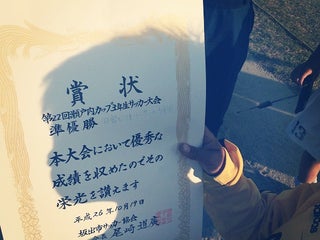 賞状
第22回瀬戸内カップ3年生サッカー大会
準優勝
本大会において優秀な
成績を収めたのでその
栄光を讃えます
平成26年10月19日
坂出市サッカー協会
会長 尾崎道広